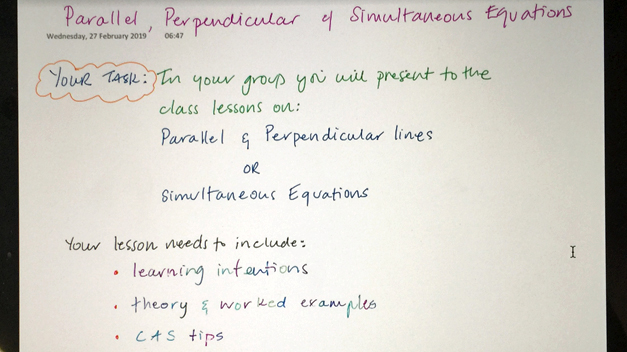 Parallel, Perpendicular & Simultaneous Equations
Wednesday, 27 February 2019 06:47
YOUR TASK: In your group you will present to the
class lessons on:
Parallel & Perpendicular lines
OR
Simultaneous Equations
Your lesson needs to include:
• learning intentions
• theory & worked examples
• CAS tips